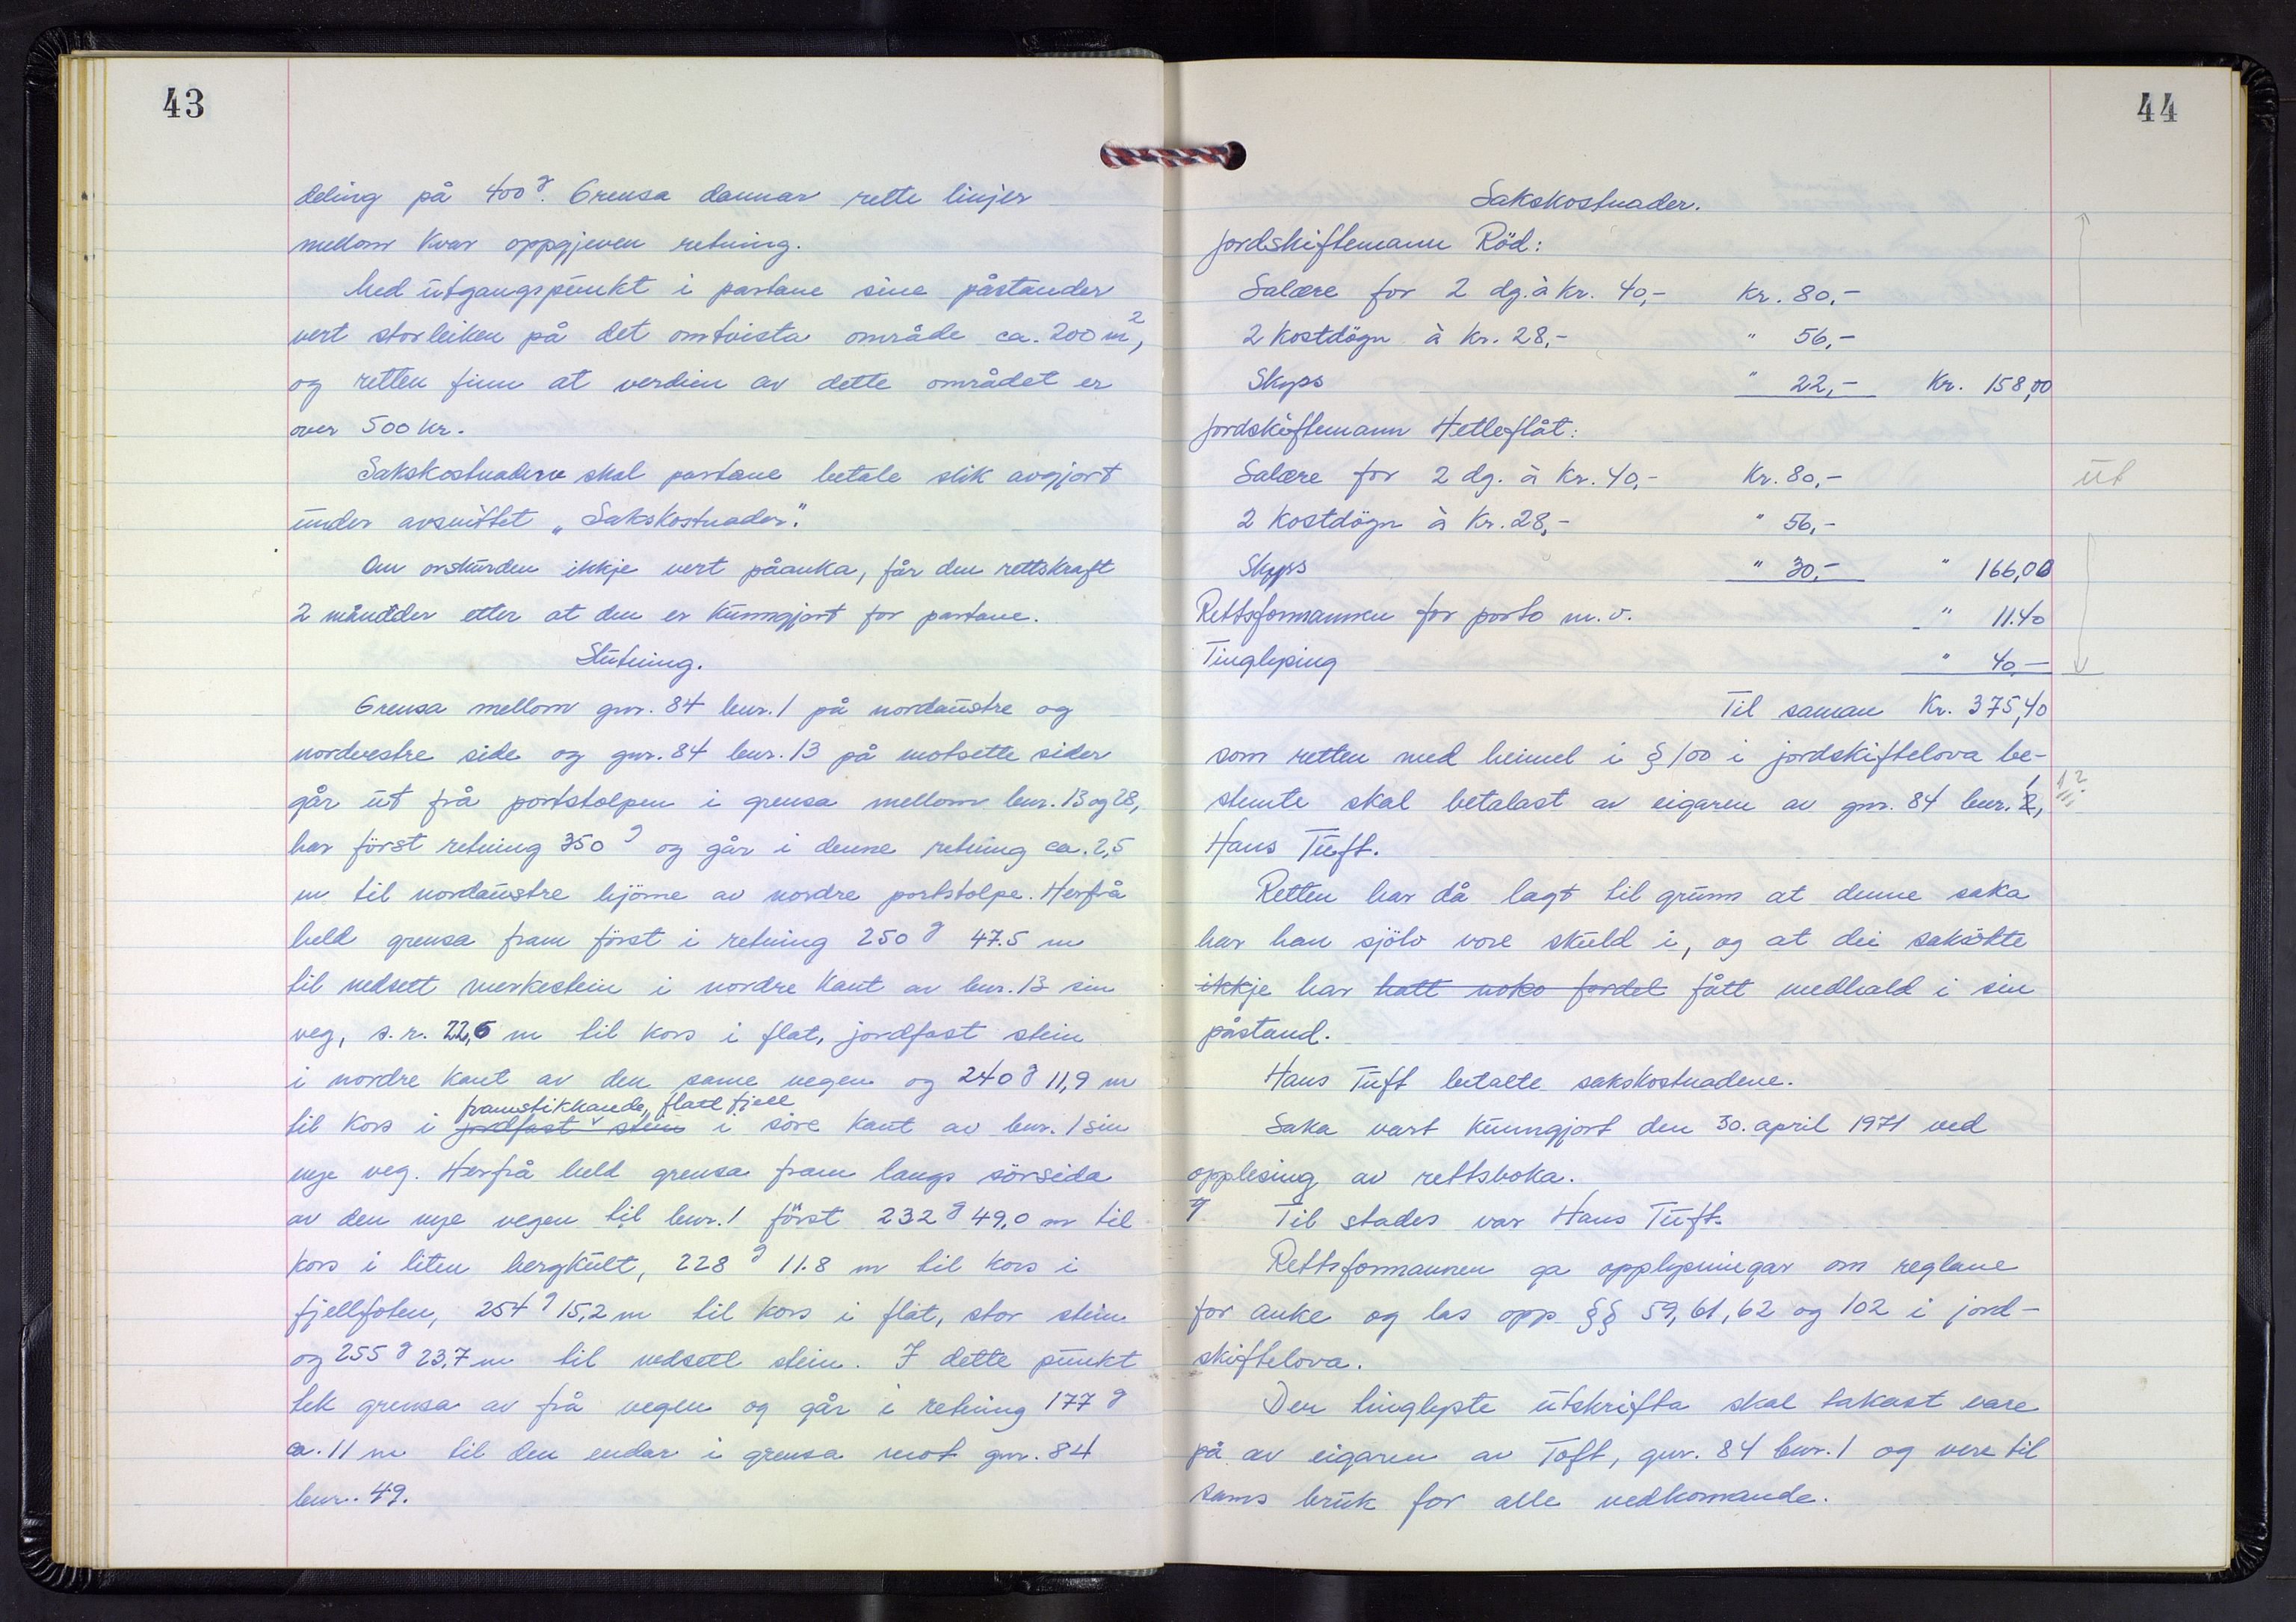 43
deling på 400g. Grensa dannar rette linjer
mellom kvar oppgjeven retning.
Med utgangspunkt i partane sine påstander
vert storleiken på det omtvista område ca. 200 m2,
og retten finn at verdien av dette området er
over 500 kr.
Sakskostnadene skal partane betale slik avgjort
under avsnittet „Sakskostnader".
Om orskurden ikkje vert påanka, får den rettskraft
2 månader etter at den er kunngjort for partane.
Slutning.
Grensa mellom gnr. 84 bnr. 1 på nordaustre og
nordvestre side og gnr. 84 bnr. 13 på motsette sider
går ut frå portstolpen i grensa mellom bnr. 13 og 28,
har först retning 350 g og går i denne retning ca. 2,5
m til nordaustre hjörne av nordre portstolpe. Herfrå
held grensa fram först i retning 250 g 47.5 m
til nedsett merkestein i nordre kant av bnr. 13 sin
veg, s.r. 22,6 m til kors i flat, jordfast stein
i nordre kant av den same vegen og 240 g 11,9 m
framstikkande, flatt fjell
til kors i jordfast stein i söre kant av bnr. 1 sin
nye veg. Herfrå held grensa fram langs sörsida
av den nye vegen til bnr. 1 först 232 g 49,0 m til
kors i liten bergkult, 228 g 11.8 m til kors i
fjellfoten, 254 g 15,2 m til kors i flat, stor stein
og 255 g 23,7 m til nedsett stein. I dette punkt
tek grensa av frå vegen og går i retning 177 g
ca. 11 m til den endar i grensa mot gnr. 84
bnr. 49.
44
Sakskostnader.
Jordskiftemann Röd:
Salære for 2 dg. à kr. 40,- Kr. 80,-
2 kostdögn à kr. 28,- " 56,-
Skyss " 22,- Kr. 158,00
Jordskiftemann Hetleflåt:
Salære for 2 dg. à kr. 40,- Kr. 80,-
ut
2 kostdögn à kr. 28,- " 56,-
Skyss " 30,- " 166,00
Rettsformannen for porto m.v. " 11.40
Tinglysing " 40,-
Til saman Kr. 375,40
som retten med heimel i § 100 i jordskiftelova be-
stemte skal betalast av eigaren av gnr. 84 bnr. 1,
Hans Tuft.
Retten har då lagt til grunn at denne saka
har han sjölv vore skuld i, og at dei saksökte
ikkje har hatt noko fordel fått medhald i sin
påstand.
Hans Tuft betalte sakskostnadene.
Saka vart kunngjort den 30. april 1971 ved
opplesing av rettsboka.
Til stades var Hans Tuft.
Rettsformannen ga opplysningar om reglane
for anke og las opp §§ 59, 61, 62 og 102 i jord-
skiftelova.
Den tinglyste utskrifta skal takast vare
på av eigaren av Toft, gnr. 84 bnr. 1 og vere til
sams bruk for alle vedkomande.